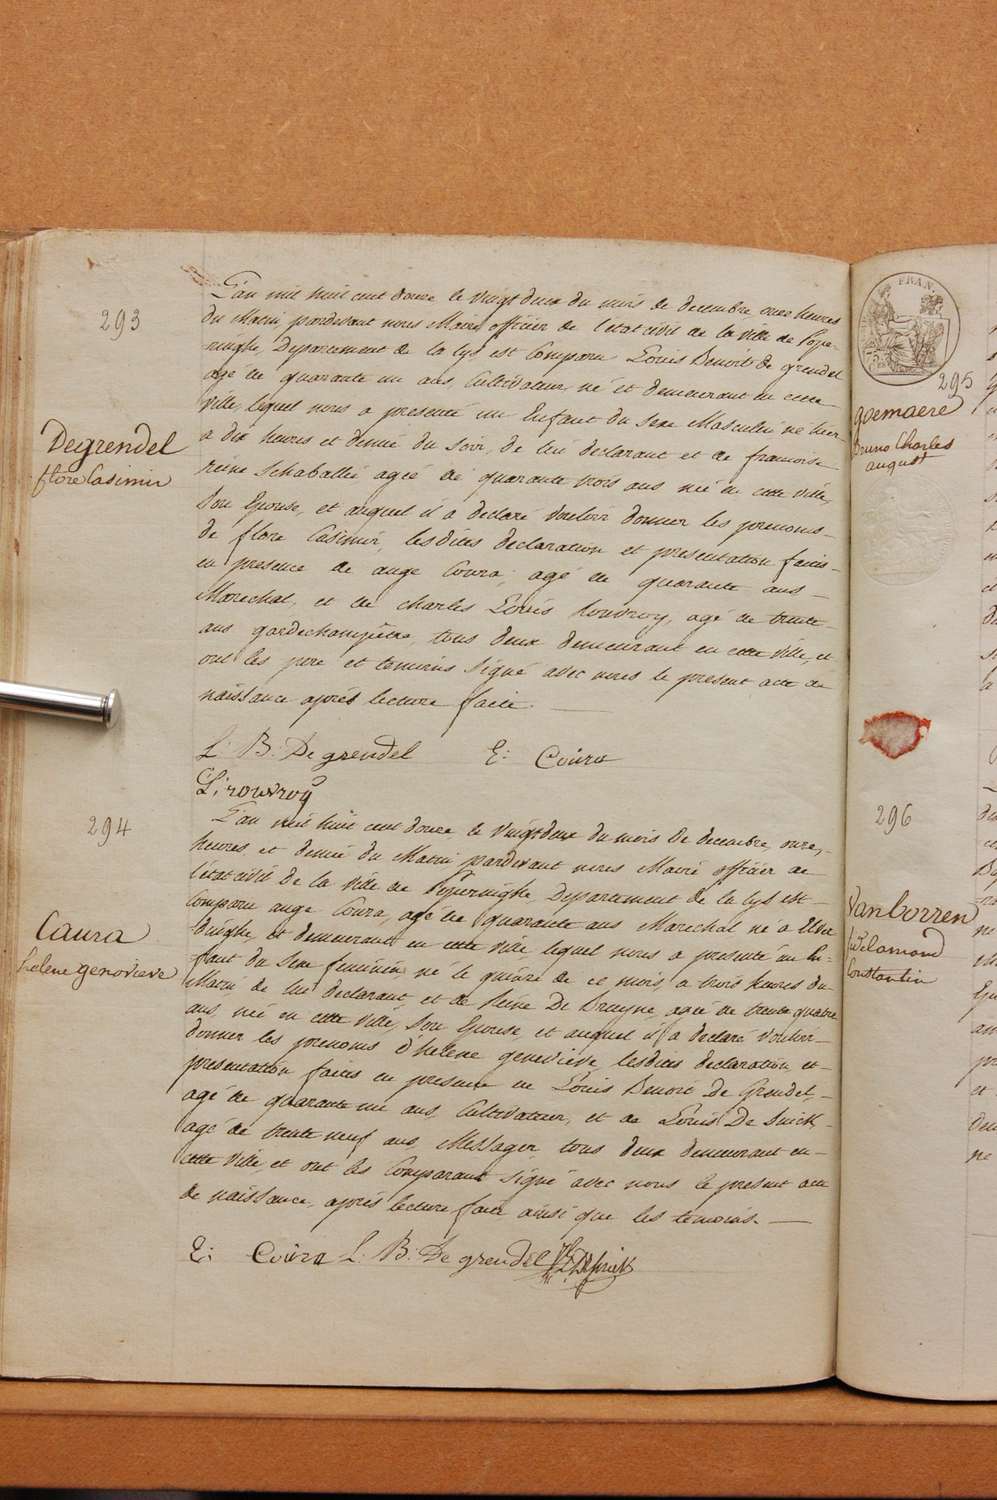 293
Degrendel
flore Casimir
L'an mil huit cent douze le vingt deux du mois de decembre onze heures
du Matin pardevant nous Maire officier de l'etat civil de la ville de Pope-
ringhe, Departement de la lys est Comparu Louis Benoit de grendel
agé de quarante un ans, Cultivateur, né et demeurant en cette
ville, lequel nous a presenté un Enfant du sexe Masculin né hier
a dix heures et demie du Soir, de lui declarant et de francoise
reine Schaballie agée de quarante trois ans née en cette ville,
Son Epouse, et auquel il a declaré Vouloir donner les prenoms
de flore Casimir, lesdites declaration et presentation faites
en presence de ange Coura, agé de quarante ans
Marechal, et de charles Louis Rouvroy, agé de trente
ans gardechampetre, tous deux demeurant en cette ville, et
ont les pere et temoins Signé avec nous le present acte de
naissance aprés lecture faite.
L: B. De grendel E: Coura
L: rouvroy
294
Caura
helene genevieve
L'an mil huit cent douze le vingt deux du mois de decembre, onze
heures et demie du Matin pardevant nous Maire officier de
l'etat civil de la ville de Poperinghe, Departement de la lys est
Comparu ange Coura, agé de quarante ans Marechal né à
dinghe, et demeurant en cette ville, lequel nous a presenté un En-
fant du Sexe feminin, né le quinze de ce mois, a trois heures du
Matin de lui declarant, et de Reine De Bruyne, agée de trente quatre
ans, née en cette ville, Son Epouse, et auquel il a declaré Vouloir
donner les prenoms d'helene genevieve, lesdites declaration, et
presentation faites en presence de Louis Benoit De Grendel,
agé de quarante un ans, Cultivateur, et de Louis De Snick
agé de trente neuf ans, Messager, tous deux demeurant en
cette Ville, et ont les Comparant Signé avec nous le present acte
de naissance, aprés lecture faite ainsi que les temoins.
E: Coura L. B. De grendel
FRAN.
295
goemaere
bruno Charles
august
296
Vanborren
Constantin